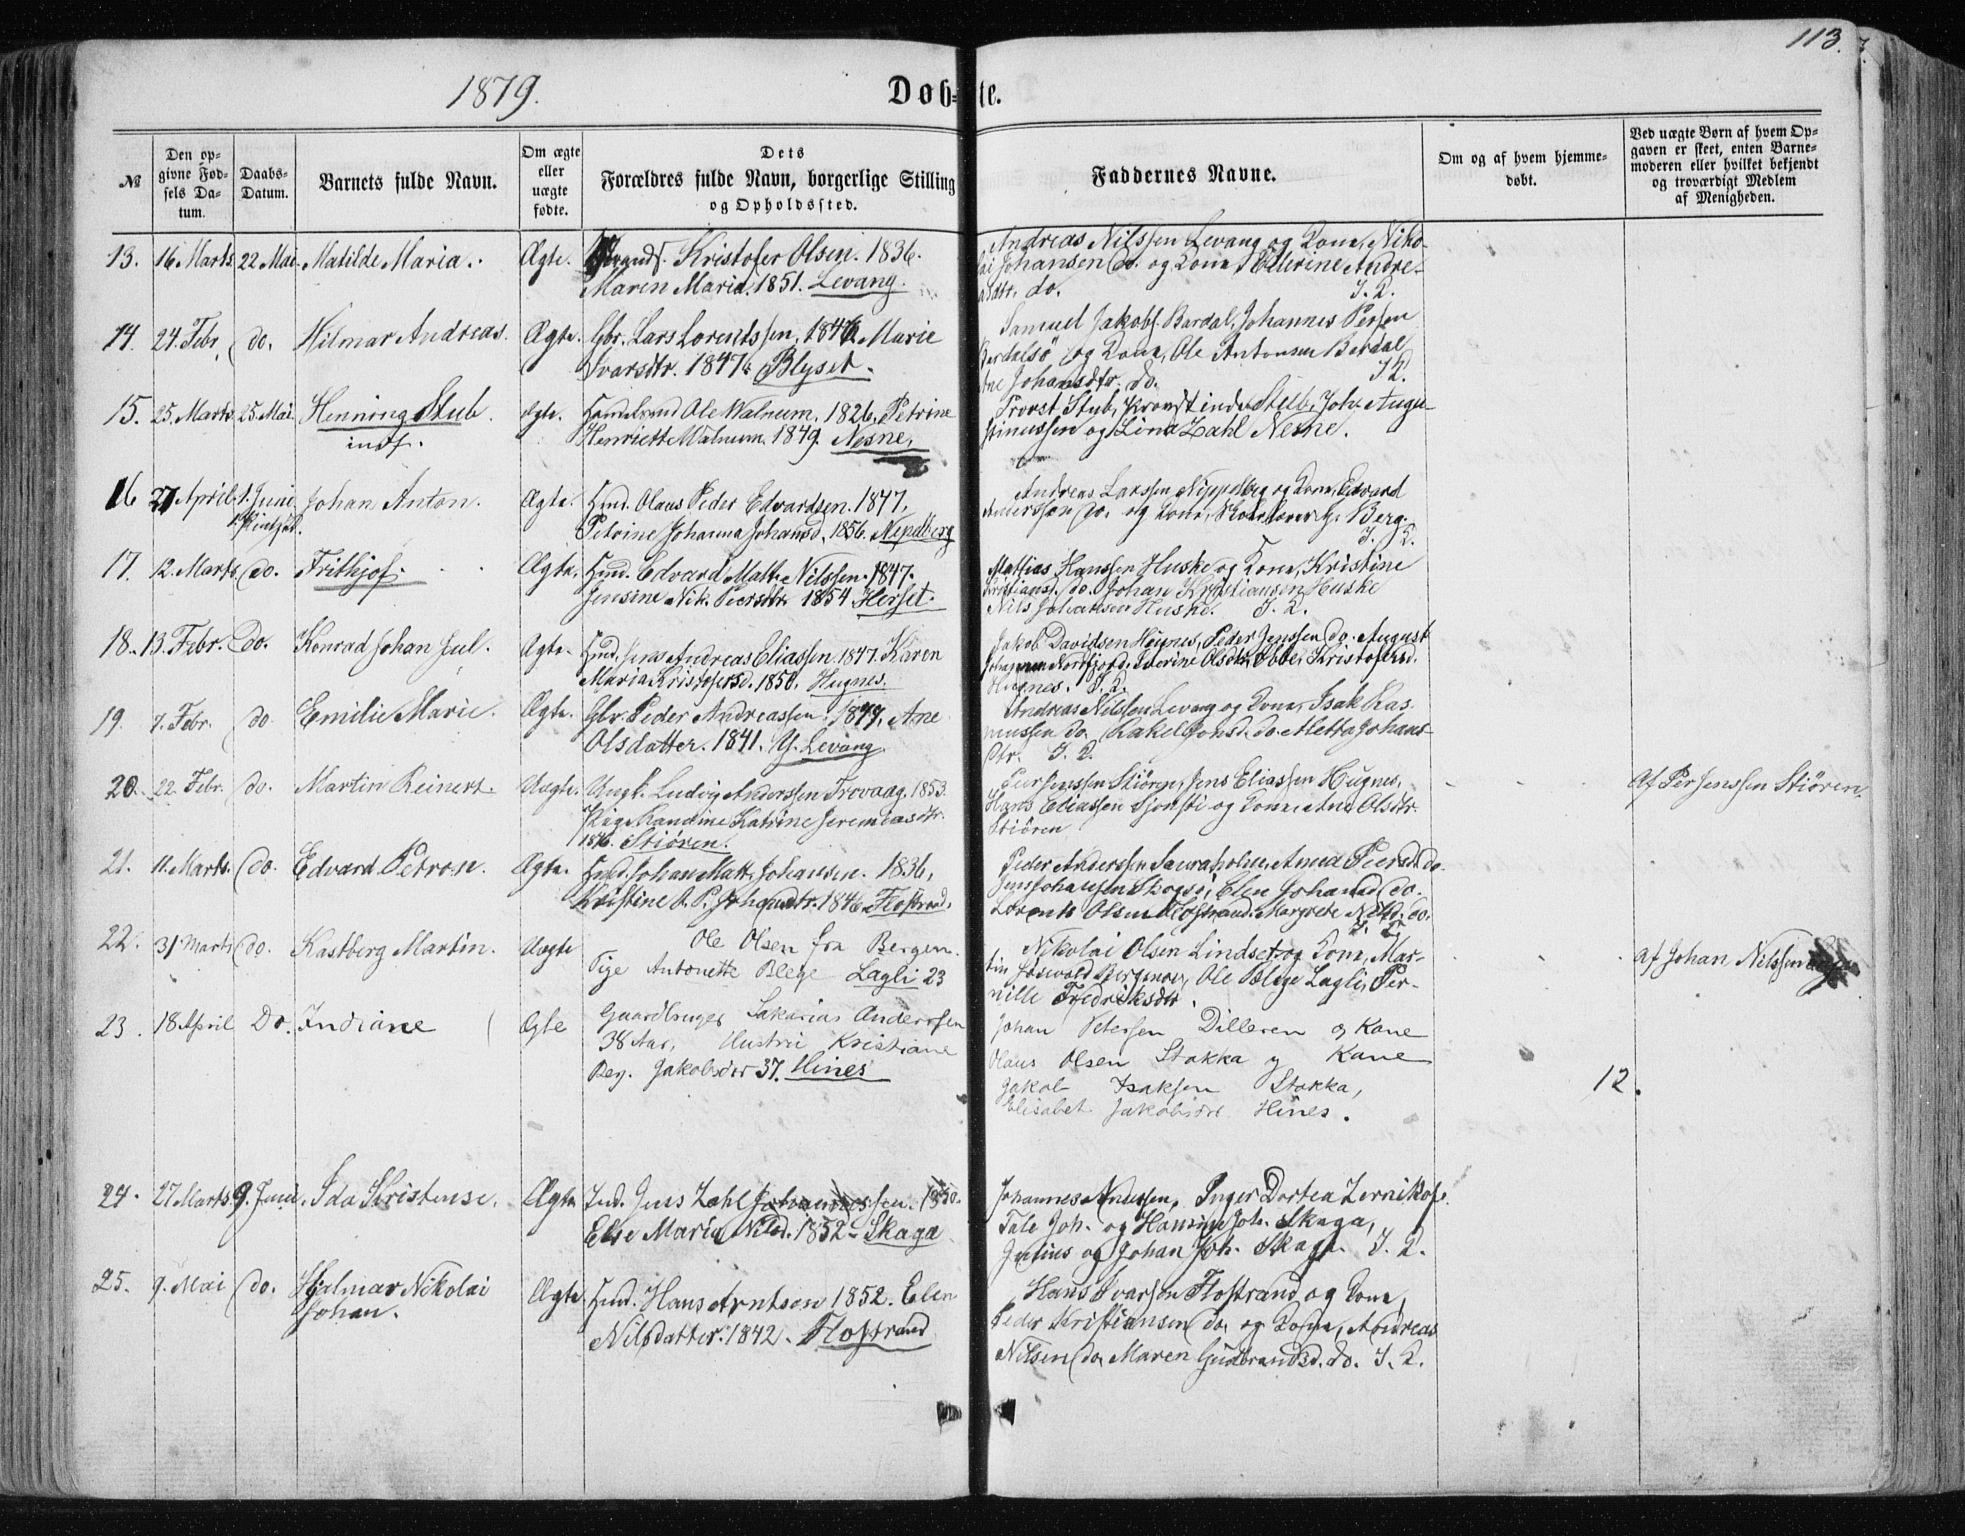 113.
1879.
Døb=te.
№
Den op=
givne Fød=
sels Da=
tum.
Daabs=
Datum.
Barnets fulde Navn.
Om ægte
eller
uægte
fødte.
Dets
Forældres fulde Navn, borgerlige Stilling
og Opholdssted.
Faddernes Navne.
Om og af hvem hjemme=
døbt.
Ved uægte Børn af hvem Op=
gaven er skeet, enten Barne=
moderen eller hvilket bekjendt
og troværdigt Medlem
af Menigheden.
13. 16 Marts. 22 Mai. Matilde Maria. Ægte. Kristofer Olsen. 1836.
Maren Maria. 1851. Levang.
Andreas Nilssen Levang og Kona, Niko-
lai Johansen do. og Kona, Andre-
asdtr. do. I. D.
14. 24. Febr. do. Hilmar Andreas. Ægte. Gbr. Lars Lorentssen, 1846 Marie
Ivarsdtr. 1847. Blyset.
Samuel Jakobs. Bardal, Johannes Persen
Bardalsø og Kona, Ole Antonsen Bardal
Ane Johansdtr. do. I D.
15. 25. Marts. 25. Mai. Henning Stub. Ægte. Ole Walnum, 1826, Petrine
indf. Henriette Walnum. 1849. Nesne,
Provst Stub, Stub, Joh. Augu-
stinussen og Lina Zahl Nesne.
16 27 April. 1. Juni. Johan Anton. Ægte. Hmd. Olaus Peder Edvardsen. 1847,
Petrine Johanna Johansd, 1856.
Andreas Larssen og Kona, Edvard
Anderssen do. og Kona, Berg.
I. D.
17. 12. Marts. do. Frithjof. Ægte. Hmd. Edvard Matt. Nilssen. 1847.
Jensine Nik. Peersdtr. 1854. Herset.
Mathias Hanssen Huske og Kona, Kristine
Kristians. do. Johan Kristiansen Huske
Nils Johansen Huske. I. D.
18. 13. Febr. do. Konrad Johan Juul. Ægte. Hmd. Jens Andreas Eliassen. 1847. Karen
Maria Kristofersd. 1850. Hugnes.
Jakob Davidsen Hugnes, Peder Jenssen do. August
Nordfjord, Severine Olsdtr, Kristofersd.
Hugnes. I. D.
19. 7. Febr. do. Emilie Marie. Ægte. Gbr. Peder Andreassen. Ane
Olsdatter. 1841. Y. Levang
Andreas Nilssen Levang og Kona, Isak Ras
mussen do. Rakel Jonsd. do. Aletta Johans-
dtr. I. D.
20. 22. Febr. do. Martin Reinert. Uægte. Ungk. Ludvig Anderssen Trovaag. 1853.
Pige Mandine Katrine Jeremiasdtr.
Stiøren.
Per Jenssen Stiøren, Jens Eliassen Hugnes,
Hans Eliassen og Kona, Ane Olsdtr.
Stiøren
Af Per Jenssen Stiøren.
21. 11. Marts. do. Edvard Petron. Ægte. Hmd. Johan Matt. Johansen. 1836,
Kristine A. P. Johansdtr. 1846. Flostrand.
Peder Anderssen Sauraholm. Anna Peersd. do.
Jens Johansen Skogsø, Elen Johansd do.
Lorents Olsen Flostrand. Margrete Nilsd. do.
I. D.
22. 31 Marts do. Kastberg Martin. Uægte Ole Olsen fra Bergen.
Pige Antonette Blege Lagli 23
Nikolai Olsen Lindset og Kona, Mar-
tin Ole Blege Lagli, Per-
nille Fredriksdtr.
af Johan Nilssen
23. 18 April Do. Indiane Ægte Gaardbruger Sakarias Anderssen
38 Aar, Hustru Kristiane
Ber. Jakobsdtr 37. Hines
Johan Petersen Dilleren og Kone
Olaus Olsen Stokka og Kone
Jakob Isaksen Stokka,
Elisabet Jakobsdtr Hines.
12.
24. 27 Marts 9. Juni. Ida Kristense. Ægte Ind. Jens Zahl Johannessen. 1850.
Else Maria Nilsd. 1852 - Skaga
Johannes Anussen, Inger Dortea
Tale Joh. og Hansine Joh. Skaga,
Julius og Johan Joh. Skaga. I. D.
25. 9. Mai do. Hjalmar Nikolai Ægte. Hmd. Hans Arntsen 1852. Elen
Johan. Nilsdatter. 1842. Flostrand
Hans Ivarsen Flostrand og Kona,
Peder Kristiansen do. og Kona, Andreas
Nilsen do. Maren Gudbrandsd. do. I. D.